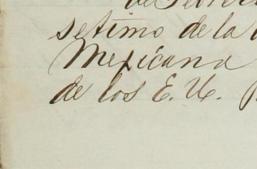 de Febrer
setimo de la
Mexicana
de los E. U.